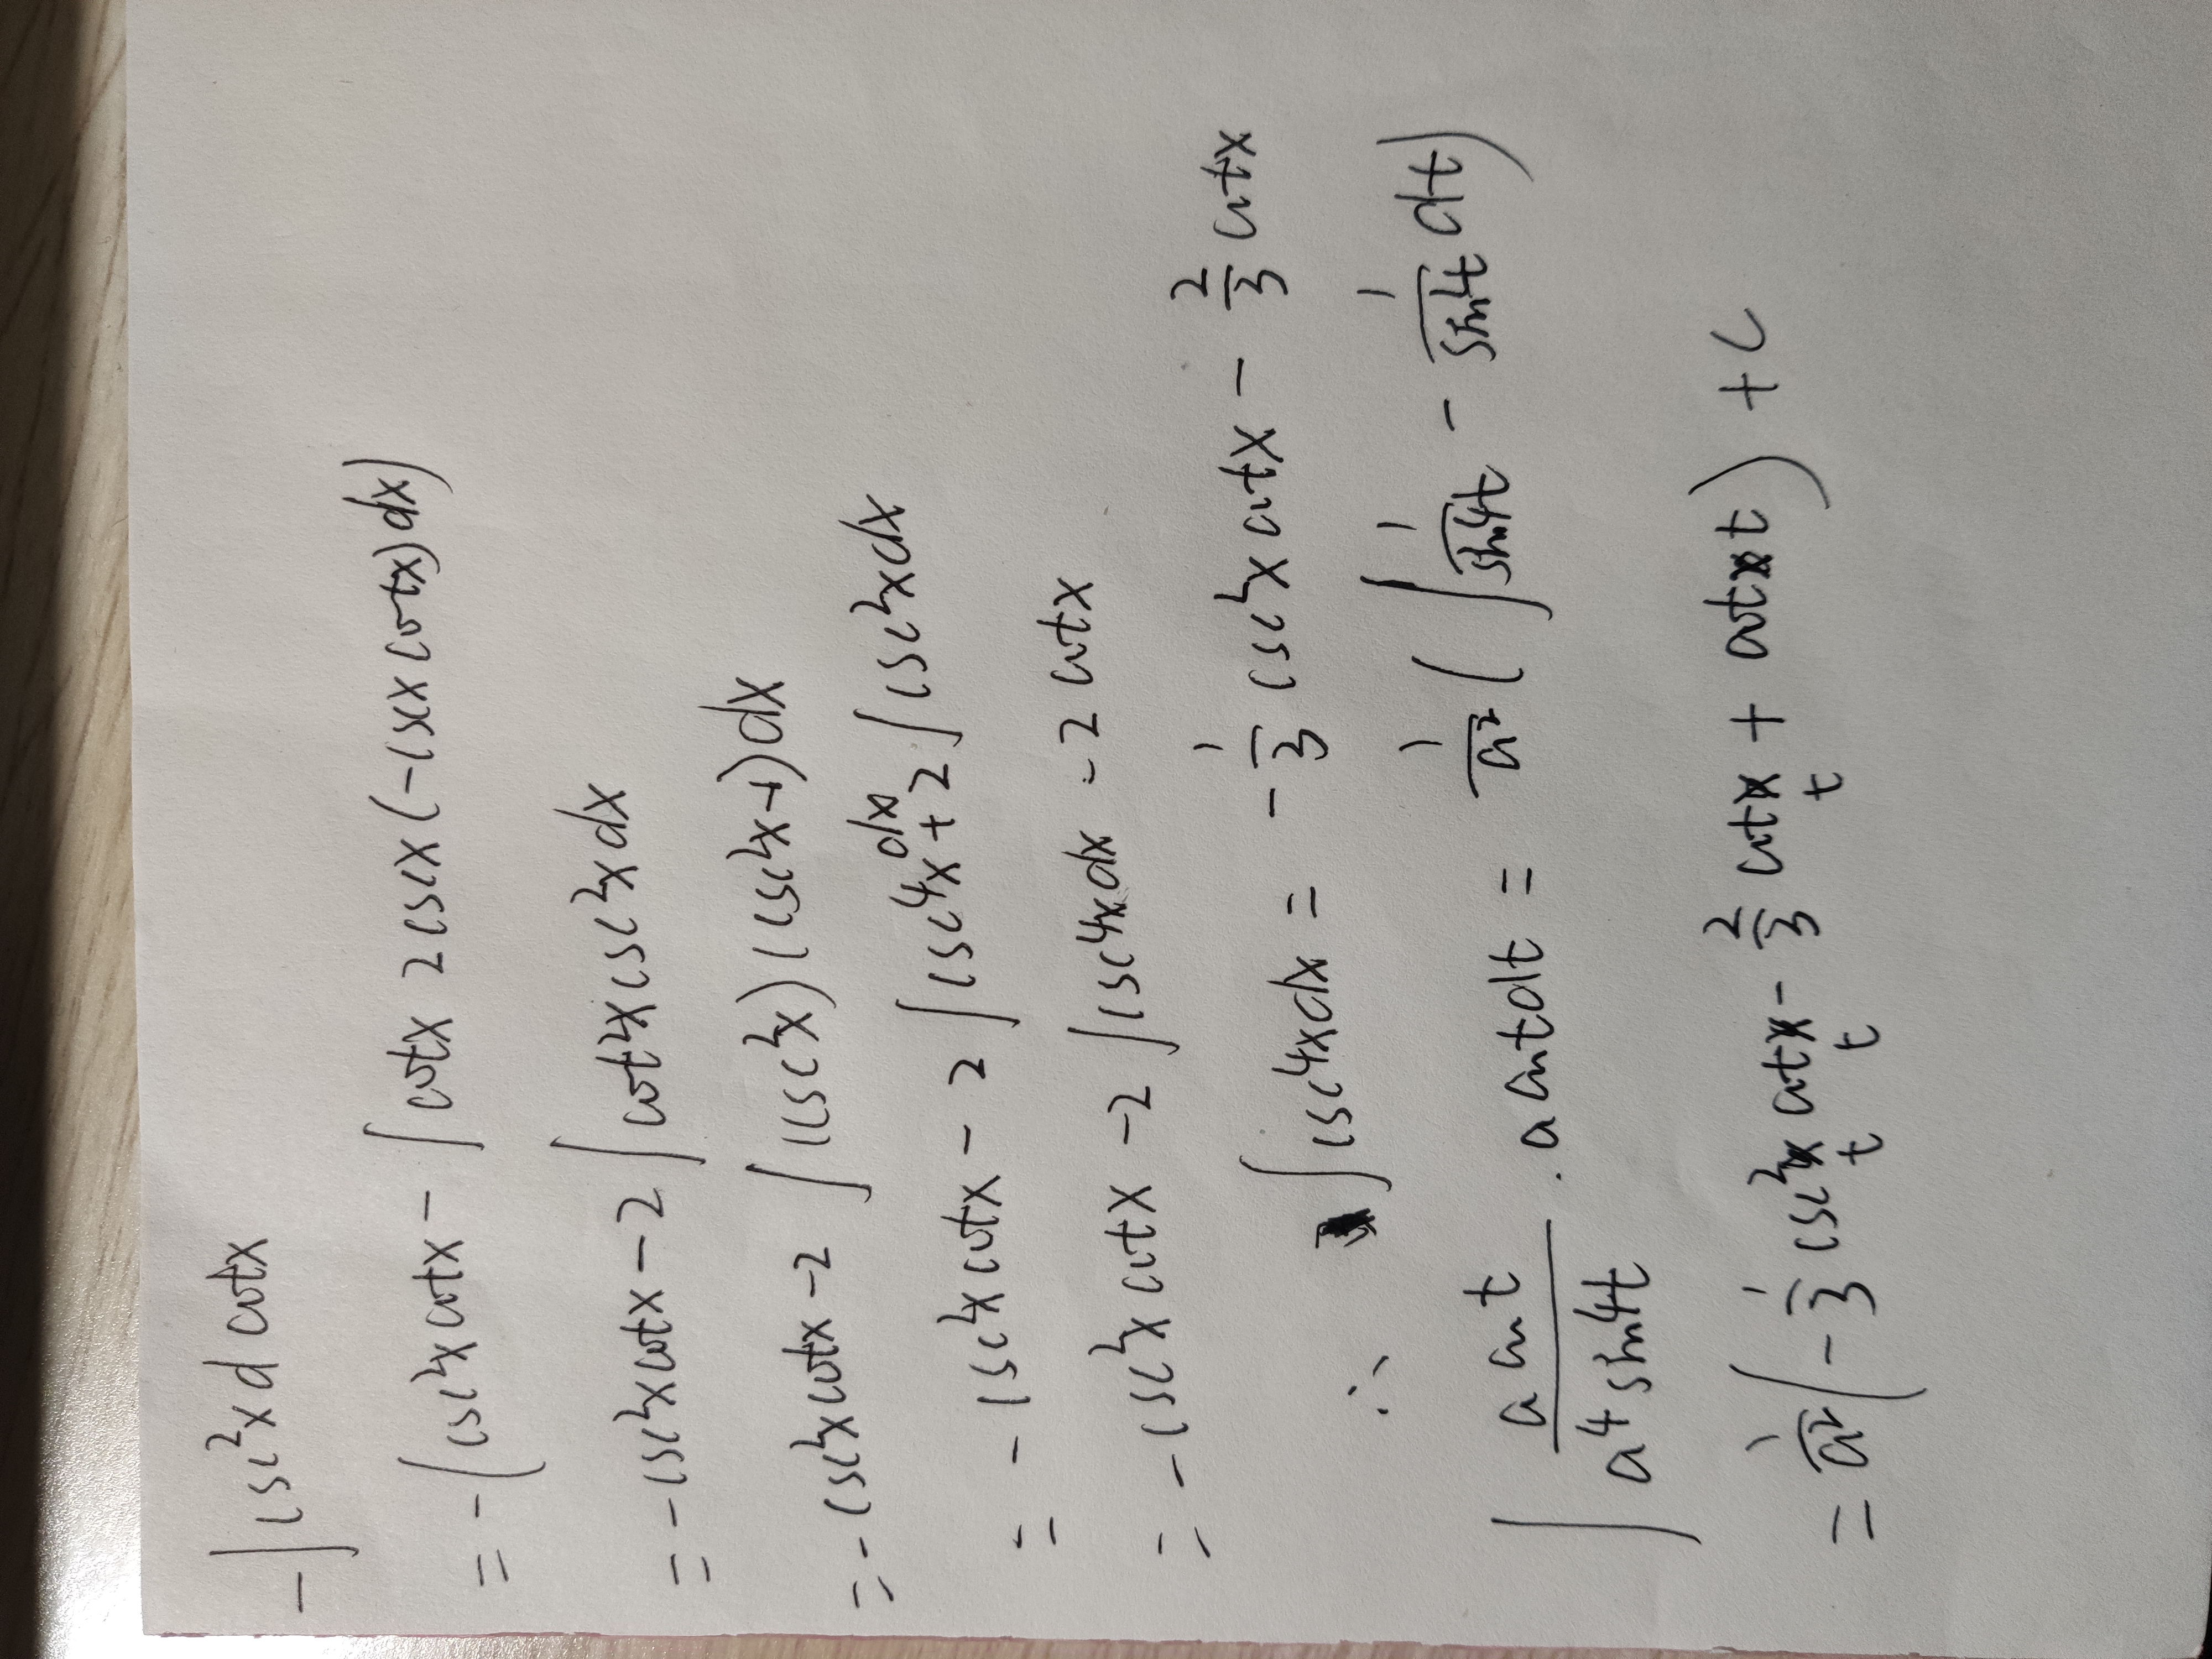 -∫csc²x d cotx
= -(csc²x cotx - ∫cotx 2cscx(-cscx cotx)dx)
= -csc²x cotx - 2∫cot²x csc²x dx
= -csc²x cotx - 2∫(csc²x)(csc²x-1)dx
= -csc²x cotx - 2∫csc⁴x dx + 2∫csc²x dx
= -csc²x cotx - 2∫csc⁴x dx - 2cotx
∴ ∫csc⁴x dx = -1/3 csc²x cotx - 2/3 cotx
∫ a cost / a⁴sin⁴t · a cost dt = 1/a² (∫ 1/sin⁴t - 1/sin²t dt)
= 1/a² (-1/3 csc²t cott - 2/3 cott + cott) + C